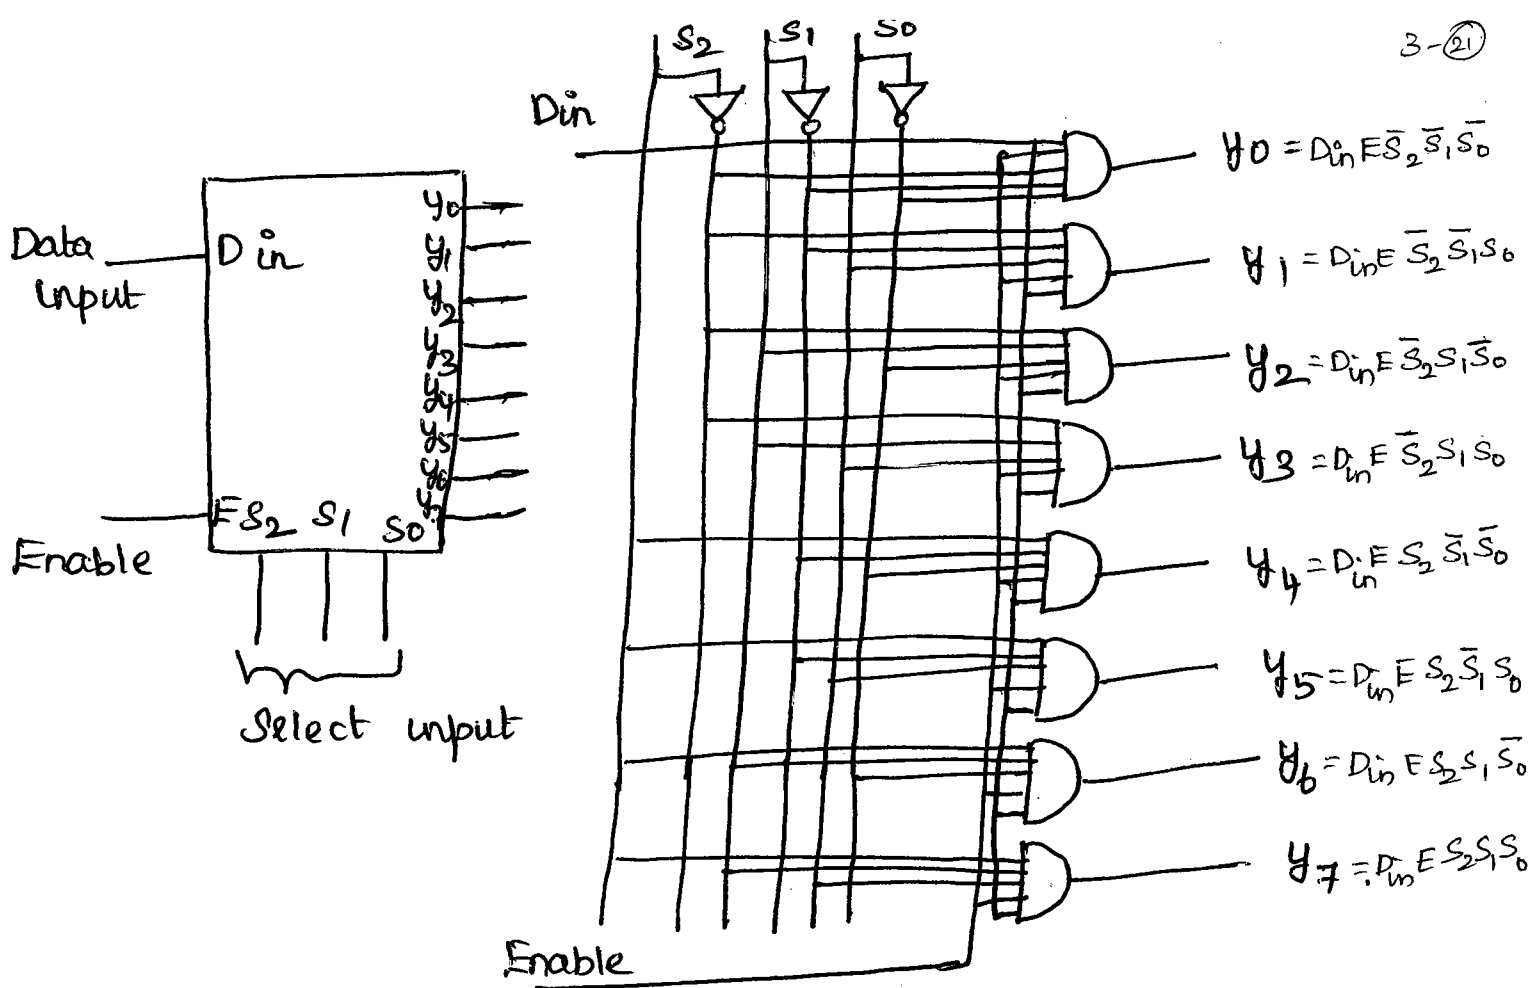 3-21
S2 S1 S0
Din
Data
input
Din
y0
y1
y2
y3
y4
y5
y6
y7
E S2 S1 S0
Enable
Select input
y0 = Din E S̅2 S̅1 S̅0
y1 = Din E S̅2 S̅1 S0
y2 = Din E S̅2 S1 S̅0
y3 = Din E S̅2 S1 S0
y4 = Din E S2 S̅1 S̅0
y5 = Din E S2 S̅1 S0
y6 = Din E S2 S1 S̅0
y7 = Din E S2 S1 S0
Enable